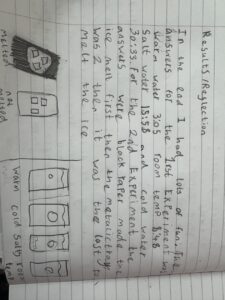 Results/Reglection
In the end I had lots of fun. The
answers for the 1st Experiment was
Warm water 3:05 room temp 8:48
Salt water 18:58 and cold water
30:33. For the 2nd Experiment the
answers were black Paper made the
ice melt first then the metalic tray
was 2 then it was the last to
melt the ice.
melted
warm cold salty room